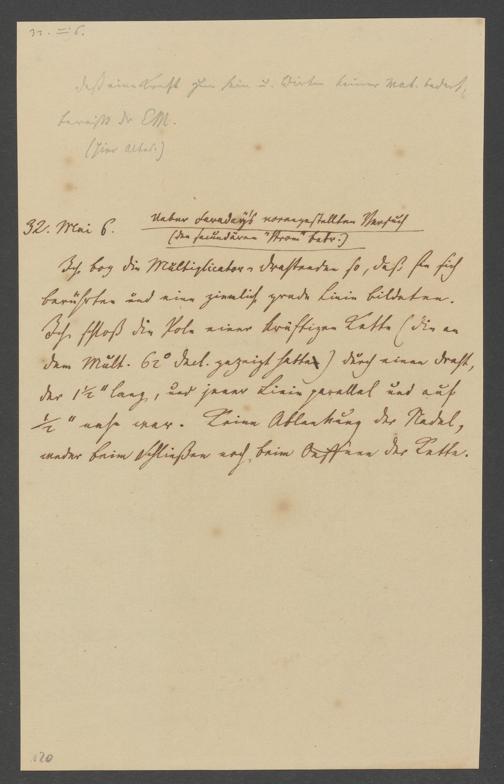 daß eine Kraft zum sein u. Wirken keiner Mat. bedarf,
beweist der EM.
(hier
32. Mai 6. Ueber Faraday's vorangestellten Versuch
(den secundären "Strom" betr.)
Ich bog die Multiplicator-drathenden so, daß sie sich
berührten und eine ziemlich grade Linie bildeten.
Ich schloß die Pole einer kräftigen Kette (die an
dem Mult. 62° decl. gezeigt hatte) durch einen drath,
der 1½" lang, und jener Linie parallel und auf
½" nahe war. Keine Ablenkung der Nadel,
weder beim Schließen noch beim Oeffnen der Kette.
120